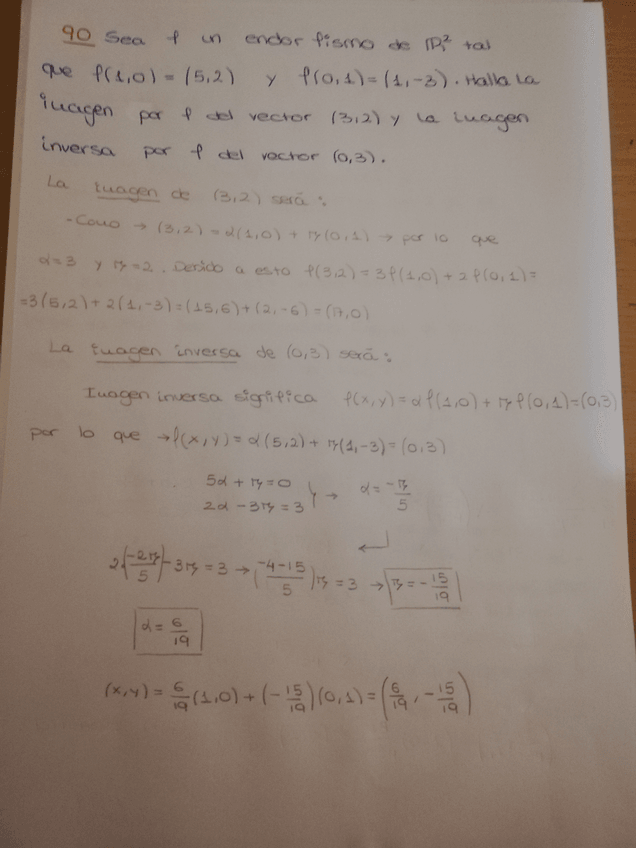 90 Sea f un endorfismo de ℝ² tal
que f(1,0) = (5,2) y f(0,1)=(1,-3). Halla la
imagen por f del vector (3,2) y la imagen
inversa por f del vector (0,3).
La imagen de (3,2) será:
-Como → (3,2) = α(1,0) + β(0,1) → por lo que
α=3 y β=2. Debido a esto f(3,2) = 3f(1,0) + 2f(0,1)=
=3(5,2) + 2(1,-3) = (15,6) + (2,-6) = (17,0)
La imagen inversa de (0,3) será:
Imagen inversa significa f(x,y) = αf(1,0) + βf(0,1)=(0,3)
por lo que →f(x,y) = α(5,2) + β(1,-3) = (0,3)
5α + β = 0
2α - 3β = 3 } → α = -β/5
2·(-2β/5) - 3β = 3 → (-4-15/5)β = 3 → β = -15/19
α = 6/19
(x,y) = 6/19 (1,0) + (-15/19)(0,1) = (6/19, -15/19)